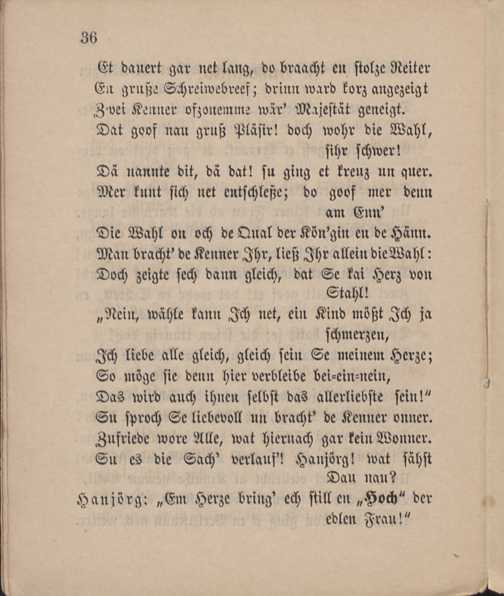 36
Et dauert gar net lang, do braacht en stolze Reiter
En gruße Schreiwebreef; drinn ward korz angezeigt
Zwei Kenner ofzonemme wär' Majestät geneigt.
Dat goof nau gruß Pläsir! doch wohr die Wahl,
sihr schwer!
Dä nannte dit, dä dat! su ging et kreuz un quer.
Mer kunt sich net entschleße; do goof mer denn
am Enn'
Die Wahl on och de Qual der Kön'gin en de Hänn.
Man bracht' de Kenner Ihr, ließ Ihr allein die Wahl:
Doch zeigte sech dann gleich, dat Se kai Herz von
Stahl!
„Nein, wähle kann Ich net, ein Kind mößt Ich ja
schmerzen,
Ich liebe alle gleich, gleich sein Se meinem Herze;
So möge sie denn hier verbleibe bei-ein-nein,
Das wird auch ihnen selbst das allerliebste sein!“
Su sproch Se liebevoll un bracht' de Kenner onner.
Zufriede wore Alle, wat hiernach gar kein Wonner.
Su es die Sach' verlauf'! Hanjörg! wat sähst
Dau nau?
Hanjörg: „Em Herze bring' ech still en „Hoch“ der
edlen Frau!“